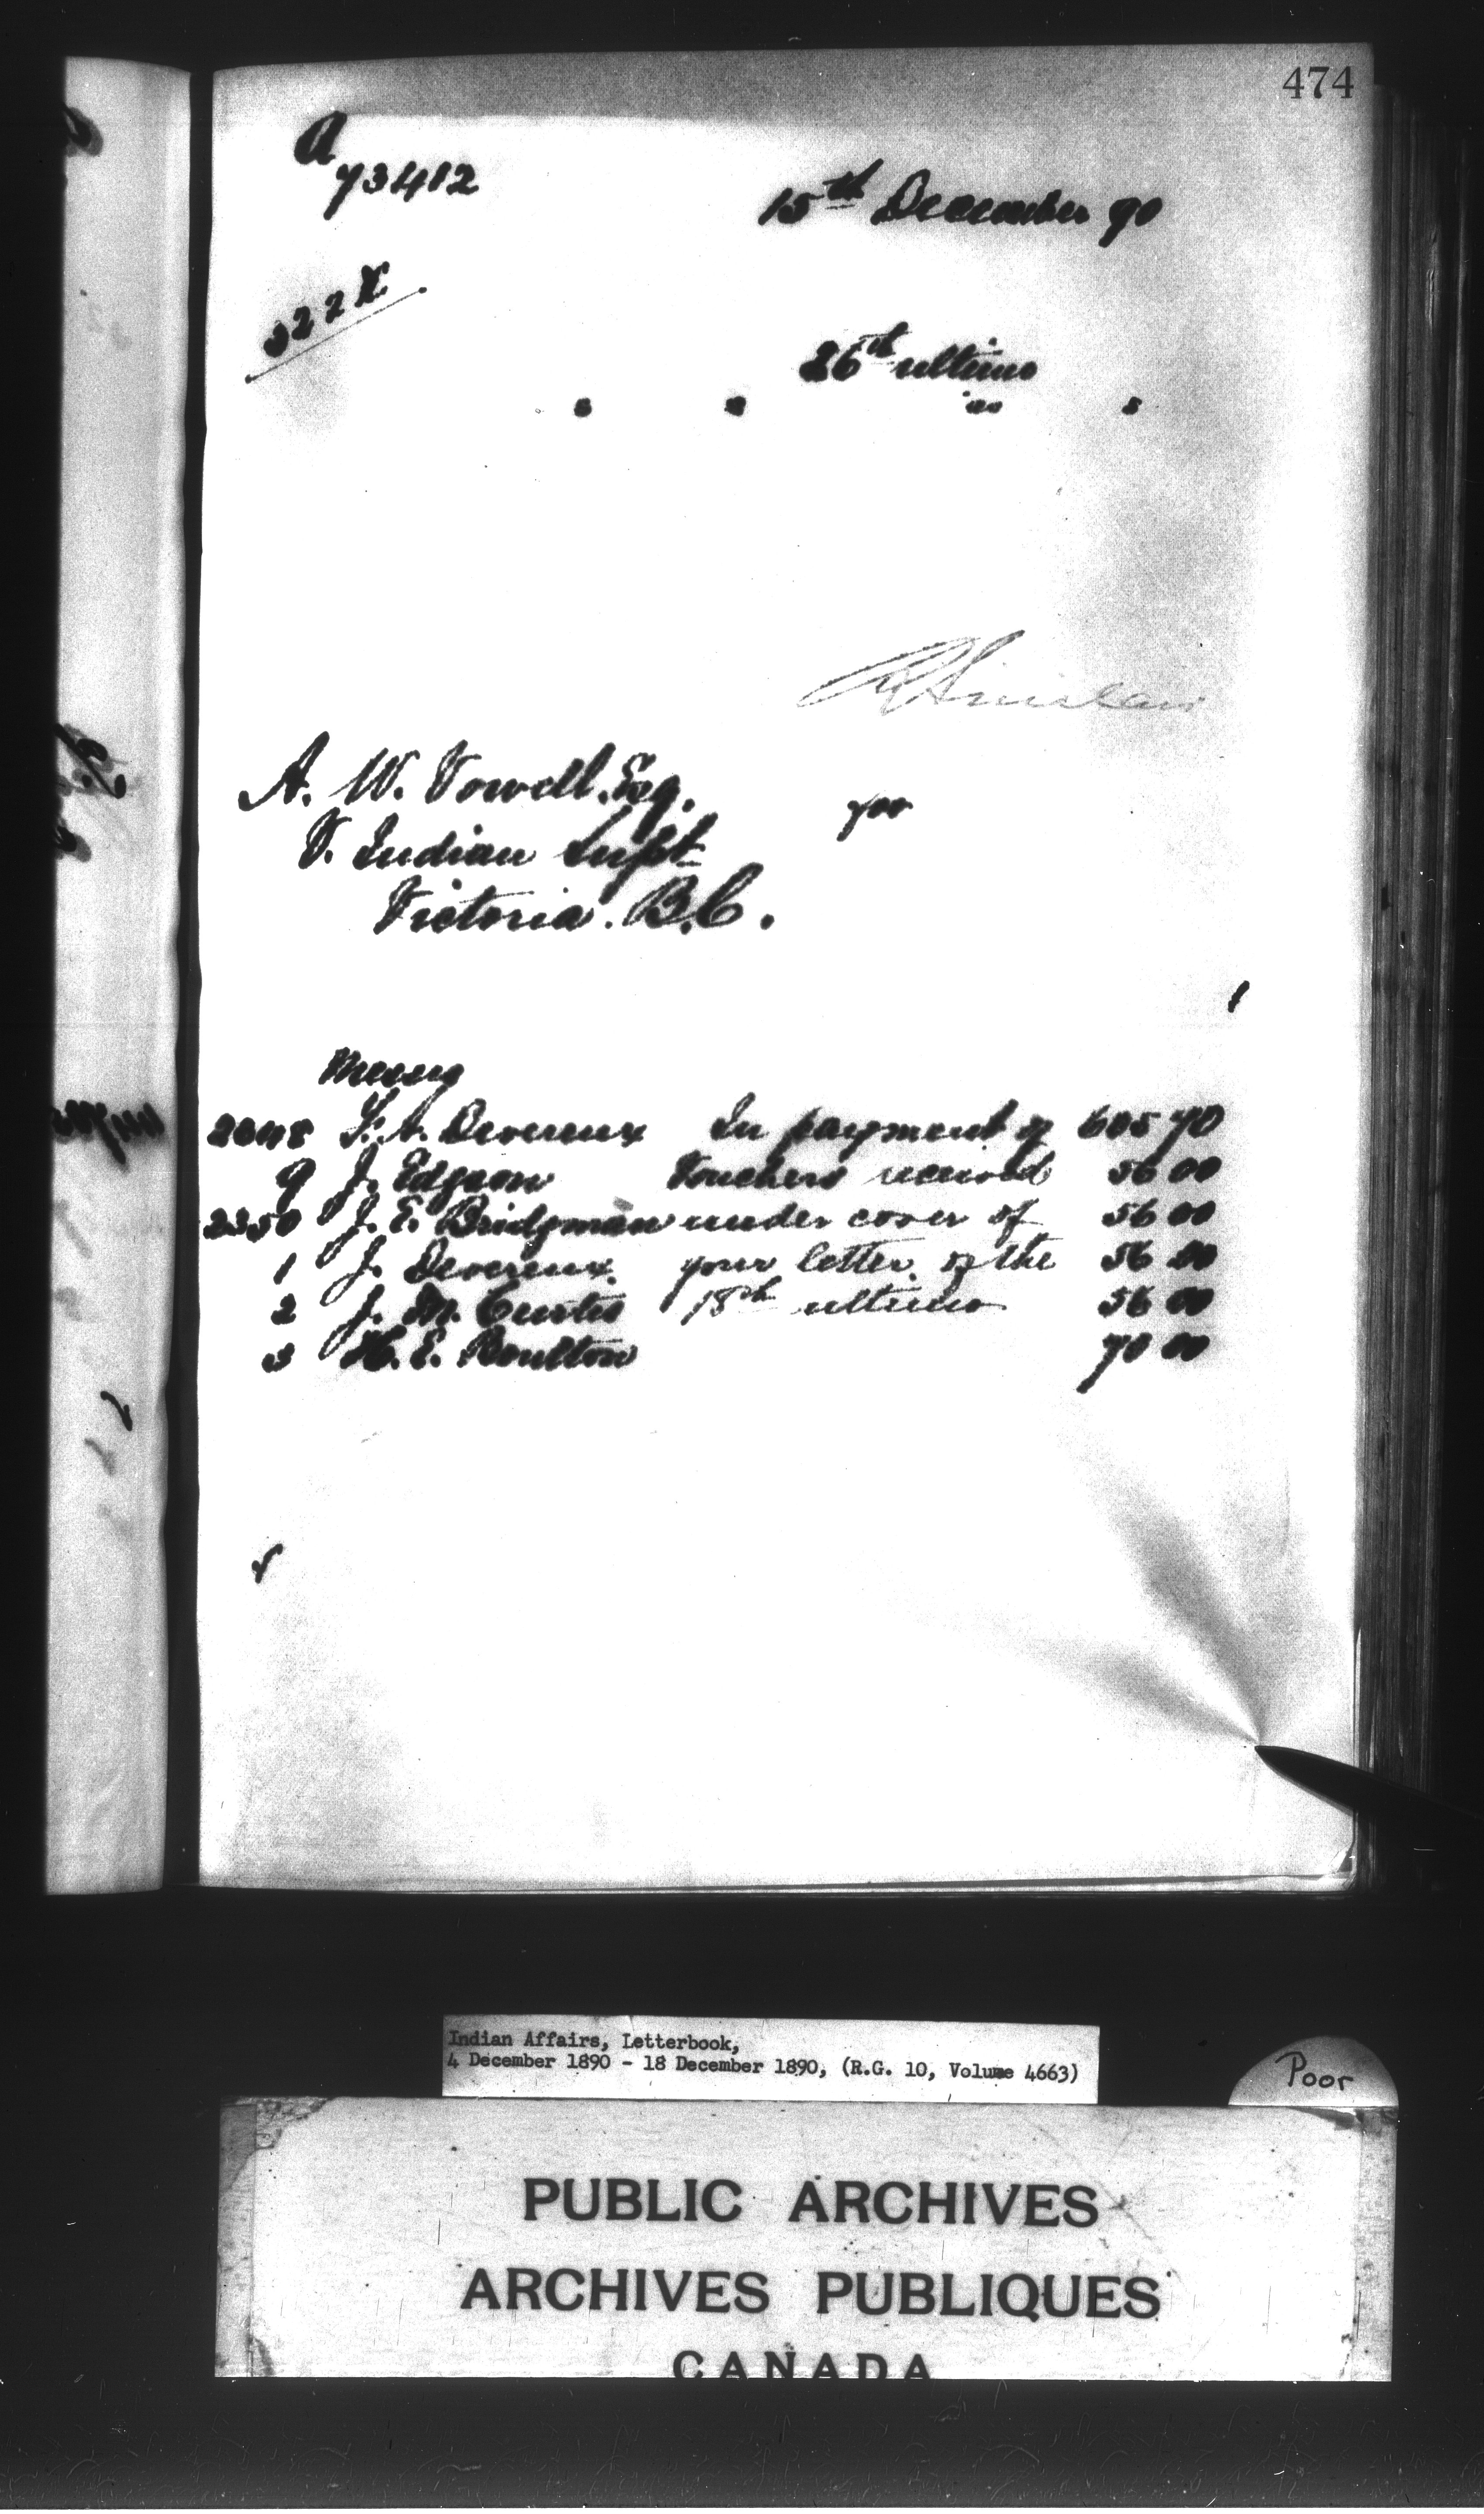 474
A
73412
15th December 90
327 X
26th ultimo
A. W. Vowell, Esq.
V. Indian Supt
Victoria. B.C.
for
Messrs
2348 F. A. Devereux In payment of 605 70
9 J. Edgson Vouchers received 56 00
2350 J. E. Bridgman under cover of 56 00
1 J. Devereux. your letter of the 56 00
2 J. M. Curtis 18th ultimo 56 00
3 H. E. Boulton 70 00
Indian Affairs, Letterbook,
4 December 1890 - 18 December 1890, (R.G. 10, Volume 4663)
Poor
PUBLIC ARCHIVES
ARCHIVES PUBLIQUES
CANADA